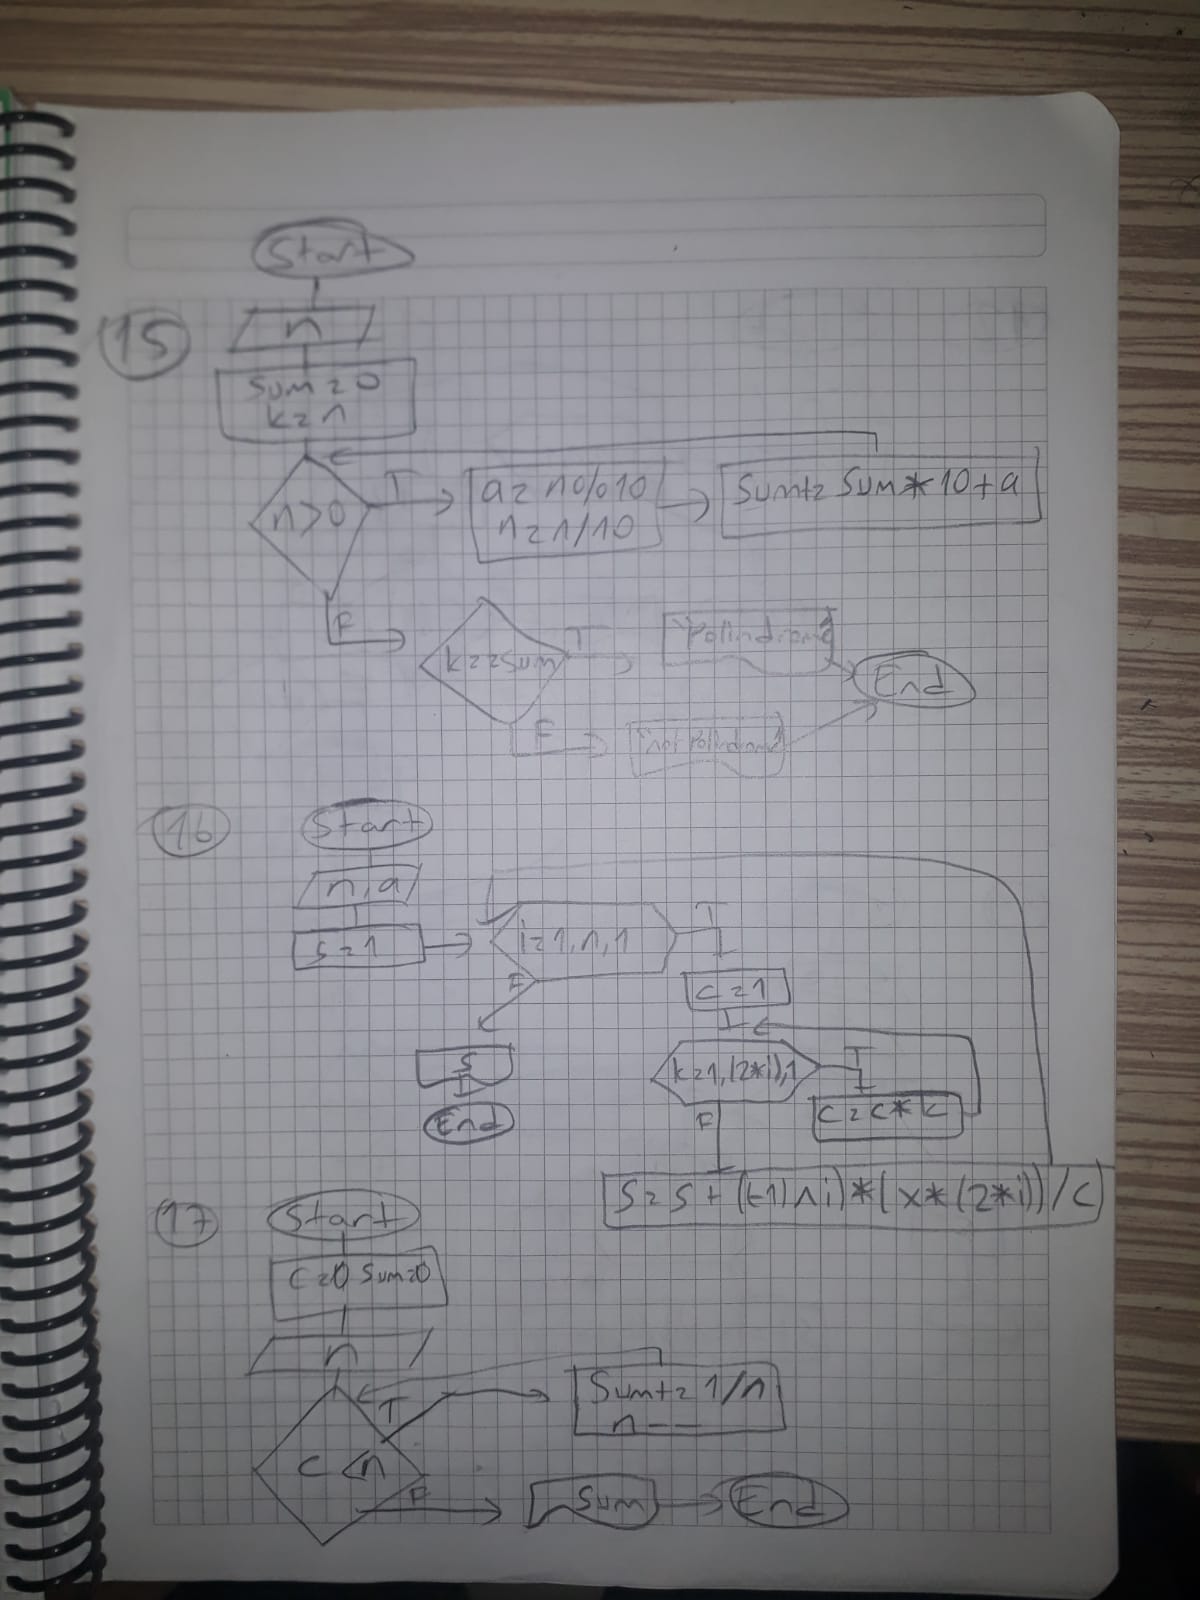 15
Start
n
Sum = 0
k = n
n>0
T
a = n%10
n = n/10
Sum += Sum * 10 + a
F
k == Sum
T
"Polindrome"
End
F
"not Polindrome"
16
Start
n, a
S = 1
i = 1, n, 1
T
F
C = 1
S
k = 1, (2*i), 1
T
C = C * k
End
F
S = S + ((-1) ^ i) * (x * (2*i)) / C
17
Start
C = 0 Sum = 0
n
T
Sum += 1/n
n--
C < n
F
Sum
End